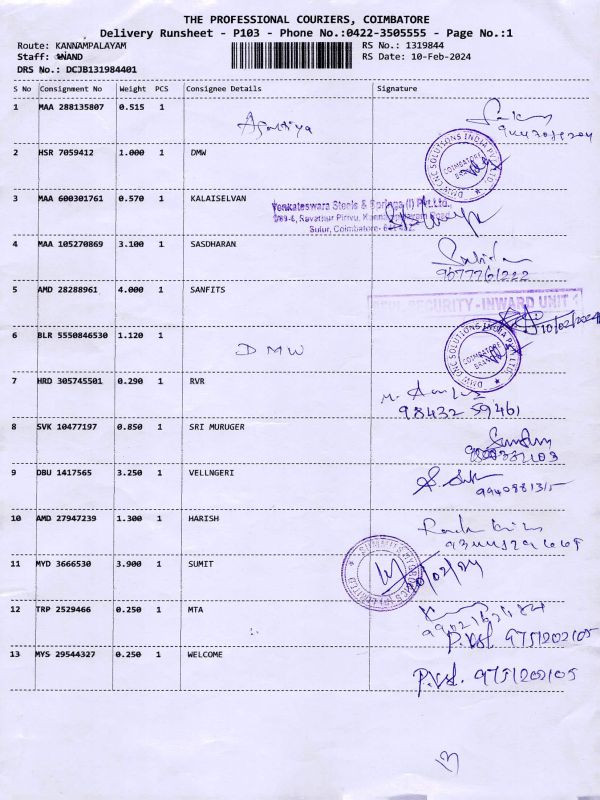 THE PROFESSIONAL COURIERS, COIMBATORE
Delivery Runsheet - P103 - Phone No.:0422-3505555 - Page No.:1
Route: KANNAMPALAYAM
RS No.: 1319844
Staff:
RS Date: 10-Feb-2024
DRS No.: DCJB131984401
S No Consignment No Weight PCS Consignee Details Signature
1 MAA 288135807 0.515 1
2 HSR 7059412 1.000 1 DMW
DMW CNC SOLUTIONS INDIA PVT LTD.
COIMBATORE
BRANCH
3 MAA 600301761 0.570 1 KALAISELVAN
Venkateswara Steels & Springs (I) Pvt.Ltd.,
Sulur, Coimbatore-
4 MAA 105270869 3.100 1 SASDHARAN
5 AMD 28288961 4.000 1 SANFITS
SECURITY-INWARD UNIT 1
10/02/2024
6 BLR 5550846530 1.120 1 DMW
DMW CNC SOLUTIONS INDIA PVT LTD.
COIMBATORE
BRANCH
7 HRD 305745501 0.290 1 RVR
98432 59461
8 SVK 10477197 0.850 1 SRI MURUGER
9 DBU 1417565 3.250 1 VELLNGERI
10 AMD 27947239 1.300 1 HARISH
11 MYD 3666530 3.900 1 SUMIT
12 TRP 2529466 0.250 1 MTA
9751202105
13 MYS 29544327 0.250 1 WELCOME
9751202105